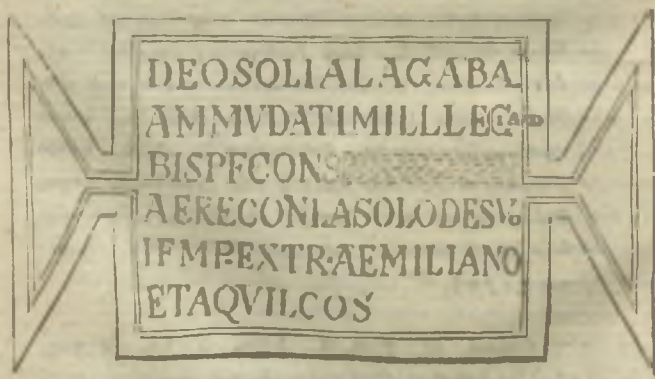 DEOSOLIALAGABA
AMMVDATIMILLLEG IAD
BISPFCONS
AERECONLASOLODESV.
IFMP.EXTR·AEMILIANO
ETAQVILCOS